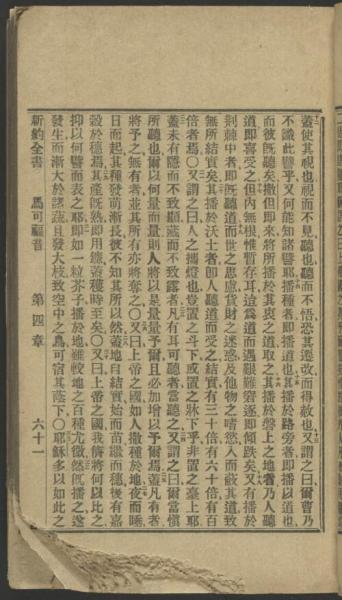 蓋使其視也視而不見聽也聽而不悟恐其遷改而得赦也又謂之曰爾曹乃
不識此譬乎又何能知諸譬耶播種者即播道也其播於路旁者即播以道也
而彼既聽矣撒但即來將所播於其衷之道取之其播於磐上之地者乃人聽
道即喜受之但內無根惟暫存耳這爲道而遇艱難窘逐即傾跌矣又有播於
荆棘中者即既聽道而世之思慮貨財之迷惑及他物之嗜慾入而蔽其道致
無所結實矣其播於沃土者即人聽道而受之結實有三十倍有六十倍有百
倍者焉〇又謂之曰人之攜燈也豈置之斗下或置之牀下乎非置之臺上耶
蓋未有隱而不致顯藏而不致露者凡有耳可聽者當聽之又謂之曰爾當慎
所聽也爾以何量而量則人將以是量量予爾且必加增以予爾焉蓋凡有者
將予之無有者並其所有亦將奪之〇又曰上帝之國如人撒種於地夜而睡
日而起其種發萌漸長彼不知其所以然蓋地自結實始而苗繼而穗後有嘉
穀於穗焉其產既熟即用鐮蓋穫時至矣〇又曰上帝之國我儕將何以比之
抑以何譬而表之耶即如一粒芥子播於地雖較地之百種尤微然既播之遂
發生而漸大於諸蔬且發大枝致空中之鳥可宿其蔭下〇耶穌多以如此之
新約全書 馬可福音 第四章 六十一